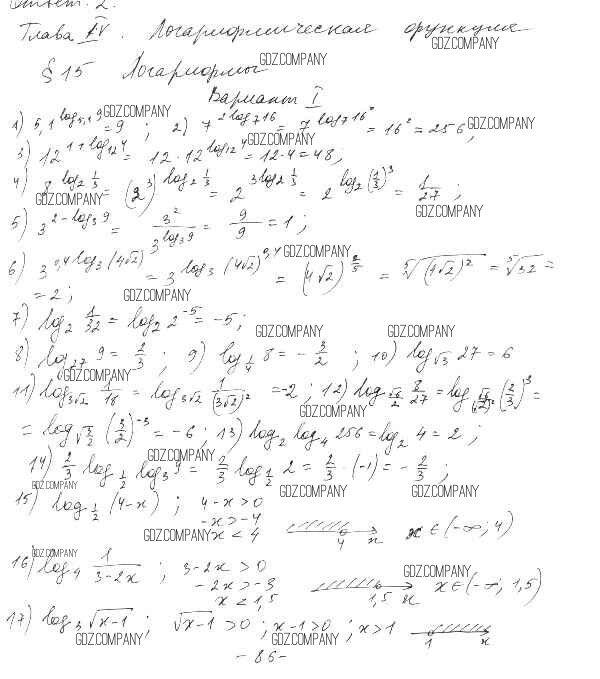 Ответ: 2.
Глава IV. Логарифмическая функция
GDZ.COMPANY
§ 15 Логарифмы GDZ.COMPANY
Вариант I
GDZ.COMPANY
1) 5,1^{log_{5,1} 9} = 9 ; 2) 7^{2 log_7 16} = 7^{log_7 16^2} = 16^2 = 256, GDZ.COMPANY
3) 12^{1+log_{12} 4} = 12·12^{log_{12} 4} = 12·4 = 48; GDZ.COMPANY
4) 8^{log_2 1/3} = (2^3)^{log_2 1/3} = 2^{3 log_2 1/3} = 2^{log_2 (1/3)^3} = 1/27 ;
GDZ.COMPANY GDZ.COMPANY
5) 3^{2 - log_3 9} = 3^2/3^{log_3 9} = 9/9 = 1;
6) 3^{0,4 log_3 (4√2)} = 3^{log_3 (4√2)^{0,4}} = (4√2)^{2/5} = ⁵√((4√2)^2) = ⁵√32 =
GDZ.COMPANY
= 2; GDZ.COMPANY
7) log_2 1/32 = log_2 2^{-5} = -5;
GDZ.COMPANY GDZ.COMPANY
8) log_{27} 9 = 2/3 ; 9) log_{1/4} 8 = - 3/2 ; 10) log_{√3} 27 = 6
GDZ.COMPANY
11) log_{3√2} 1/18 = log_{3√2} 1/(3√2)^2 = -2 ; 12) log_{√6/2} 8/27 = log (2/3)^3 =
GDZ.COMPANY
= log_{√(3/2)} (3/2)^{-3} = -6 ; 13) log_2 log_4 256 = log_2 4 = 2 ;
14) 2/3 log_{1/2} log_3 9 = 2/3 log_{1/2} 2 = 2/3 · (-1) = - 2/3 ;
GDZ.COMPANY GDZ.COMPANY GDZ.COMPANY
15) log_{1/2} (4-x) ; 4-x>0
-x>-4
GDZ.COMPANY x < 4 4 x x ∈ (-∞; 4)
GDZ.COMPANY GDZ.COMPANY
16) log_4 1/(3-2x) ; 3-2x > 0
-2x > -3
x < 1,5 1,5 x x ∈ (-∞; 1,5)
17) log_3 √(x-1) ; √(x-1) > 0 ; x-1>0 ; x>1 1 x
GDZ.COMPANY GDZ.COMPANY
- 86 -